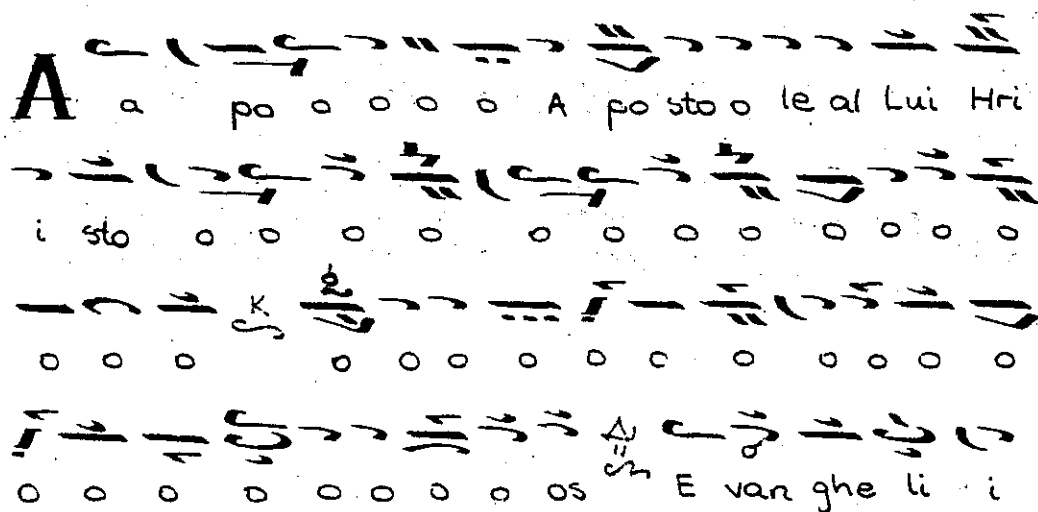 A a po o o o o A po sto o le al Lui Hri
i sto o o o o o o o o o o o o
K
o o o o o o o o o o o o o o
Δ
o o o o o o o o os E van ghe li i